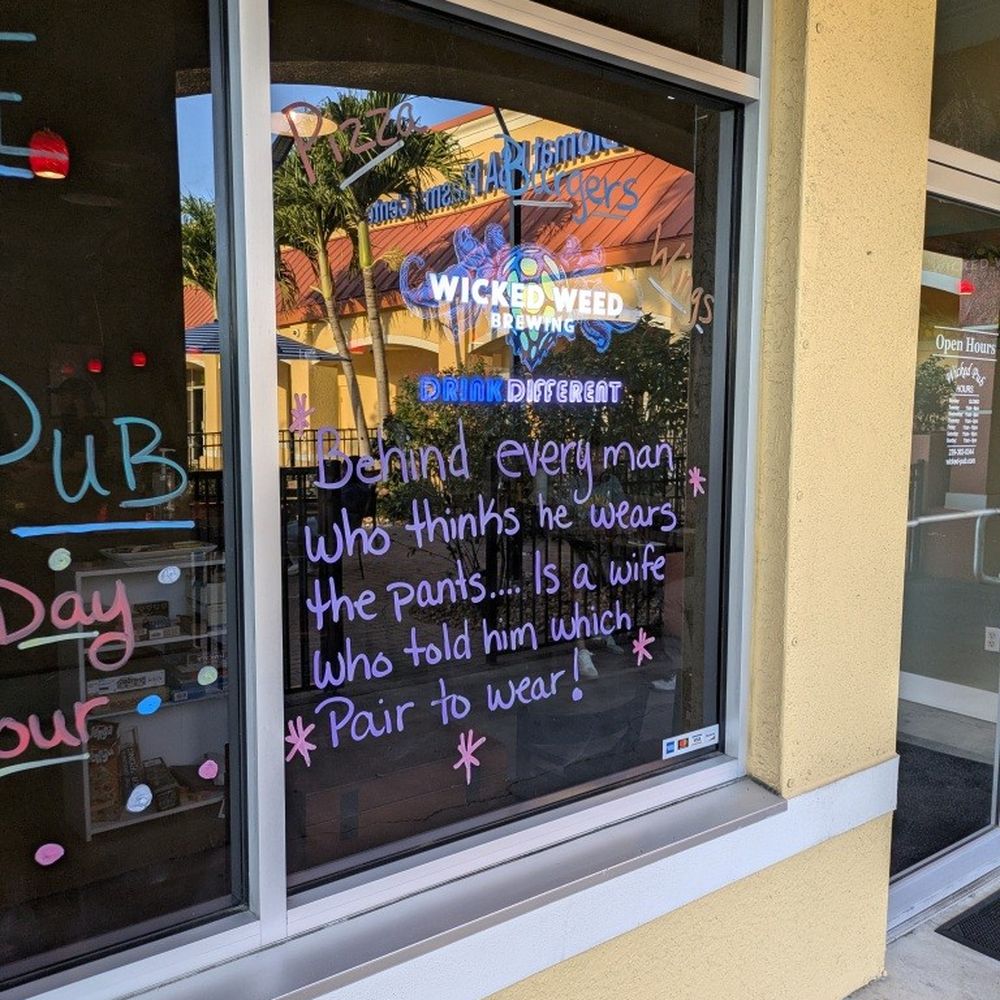 Pizza
Burgers
Wings
WICKED WEED
BREWING
DRINK DIFFERENT
Behind every man
who thinks he wears
the pants.... Is a wife
who told him which
Pair to wear!
PUB
Day
our
Open Hours
Wicked Pub
HOURS